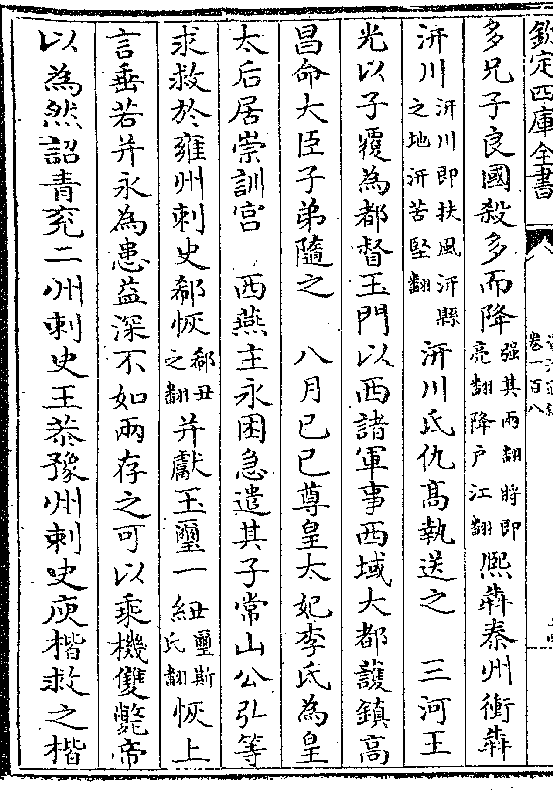 欽定四庫全書
卷一百八
多兄子良國殺多而降强其兩翻將即亮翻降户江翻熈犇秦州衝犇
汧川汧川即扶風汧縣之地汧苦堅翻汧川氐仇髙執送之　三河王
光以子覆為都督玉門以西諸軍事西域大都護鎮髙
昌命大臣子弟隨之　八月己巳尊皇太妃李氏為皇
太后居崇訓宫　西燕主永困急遣其子常山公弘等
求救於雍州刺史郗恢郗丑之翻并獻玉璽一紐璽斯氏翻恢上
言垂若并永為患益深不如兩存之可以乘機雙斃帝
以為然詔青兖二州刺史王恭豫州刺史庾楷救之楷